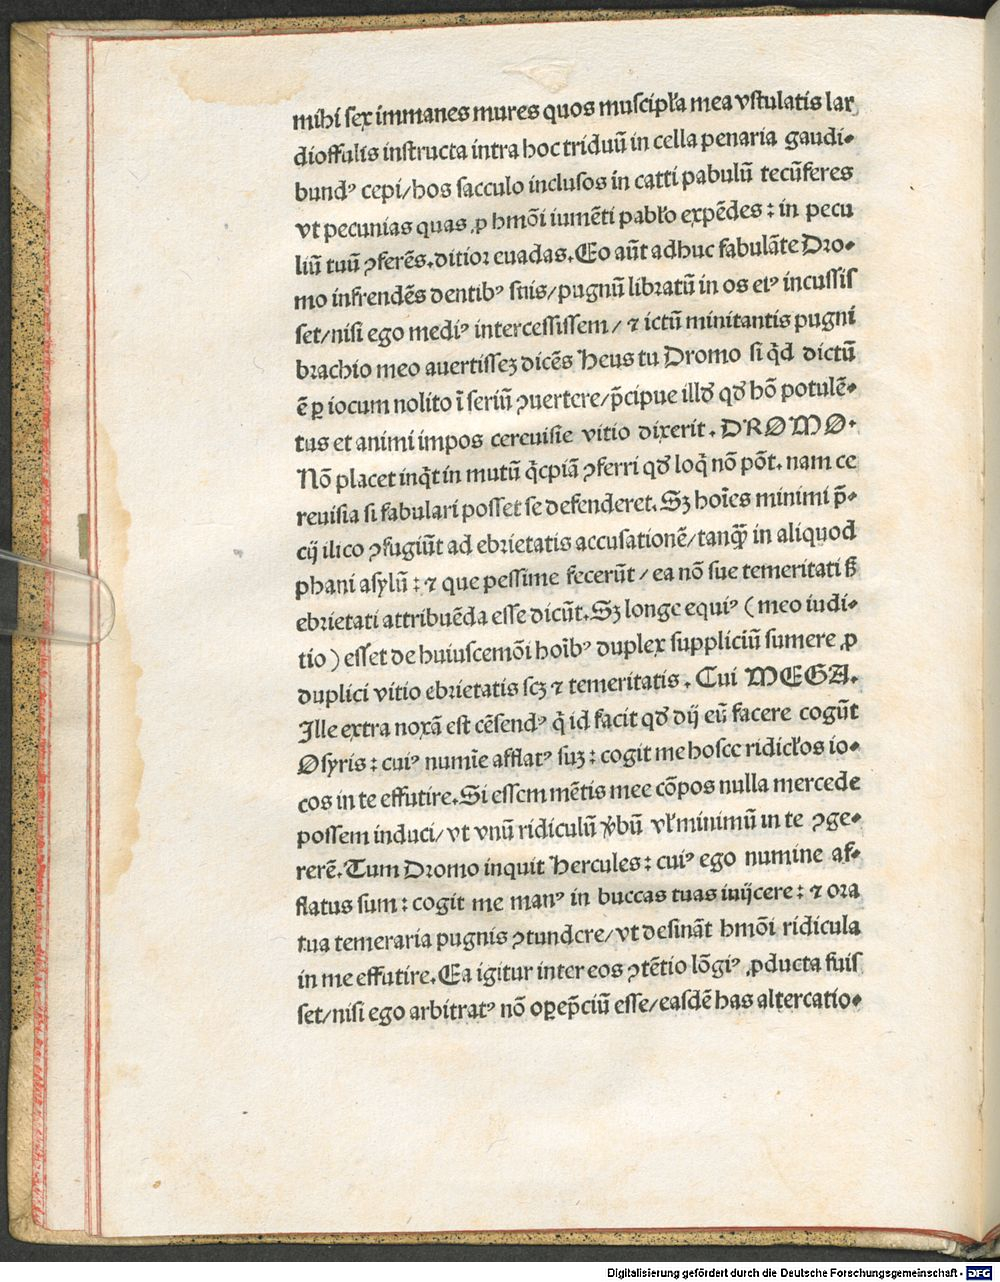 mihi sex immanes mures quos muscipl̄a mea vstulatis lar
dioffulis instructa intra hoc triduū in cella penaria gaudi⸗
bundꝰ cepi/hos sacculo inclusos in catti pabulū tecūferes
vt pecunias quas ꝓ hmōi iumēti pabl̄o expēdes: in pecu
liū tuū ꝯferēs.ditior euadas.Eo aūt adhuc fabulāte Dro⸗
mo infrendēs dentibꝰ suis/pugnū libratū in os eiꝰ incussis
set/nisi ego mediꝰ intercessissem/ ⁊ ictū minitantis pugni
brachio meo auertissez dicēs Heus tu Dromo si q̄d dictū
ē ꝑ iocum nolito ī seriū ꝯuertere/p̄cipue illđ qđ hō potulē⸗
tus et animi impos cereuisie vitio dixerit. DROMO.
Nō placet inq̄t in mutū q̄cpiā ꝯferri qđ loq̄ nō pōt. nam ce
reuisia si fabulari posset se defenderet. Sꝫ hoīes minimi p̄⸗
cij ilico ꝯfugiūt ad ebrietatis accusationē/tanqȝ̄ in aliquod
phani asylū: ⁊ que pessime fecerūt/ ea nō sue temeritati ſꝫ
ebrietati attribuēda esse dicūt. Sꝫ longe equiꝰ (meo iudi⸗
tio) esset de huiuscemōi hoībꝰ duplex suppliciū sumere ꝓ
duplici vitio ebrietatis scꝫ ⁊ temeritatis. Cui MEGA.
Ille extra noxā est cēsendꝰ q̄ id facit qđ dij eū facere cogūt
Osyris: cuiꝰ numīe afflatꝰ suꝫ: cogit me hosce ridicl̄os io⸗
cos in te effutire. Si essem mētis mee cōpos nulla mercede
possem induci/ vt vnū ridiculū v̄bū vl̄ minimū in te ꝯge⸗
rerē. Tum Dromo inquit Hercules: cuiꝰ ego numine af⸗
flatus sum: cogit me manꝰ in buccas tuas inijcere: ⁊ ora
tua temeraria pugnis ꝯtundere/vt desināt hmōi ridicula
in me effutire. Ea igitur inter eos ꝯtētio lōgiꝰ ꝓducta fuis
set/nisi ego arbitratꝰ nō oꝑep̄ciū esse/easdē has altercatio⸗
Digitalisierung gefördert durch die Deutsche Forschungsgemeinschaft - DFG